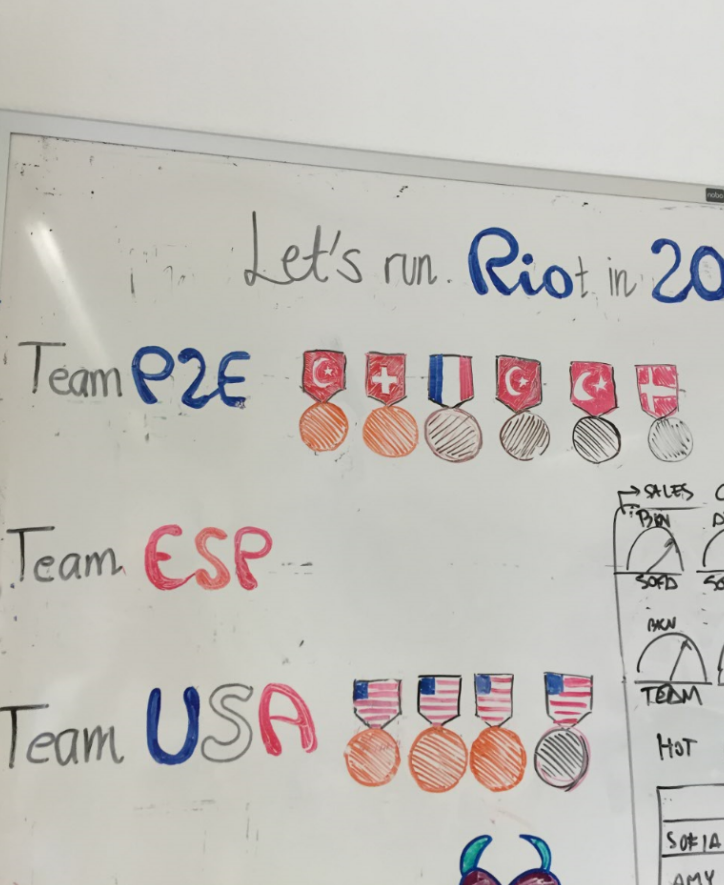 Let's run. Riot in 20
Team P2E
Team ESP
Team USA
SALES
BKN
TEAM
HOT
SOFIA
AMY